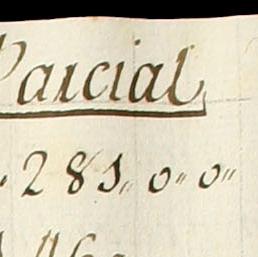 Parcial
285,, 0,, 0,,